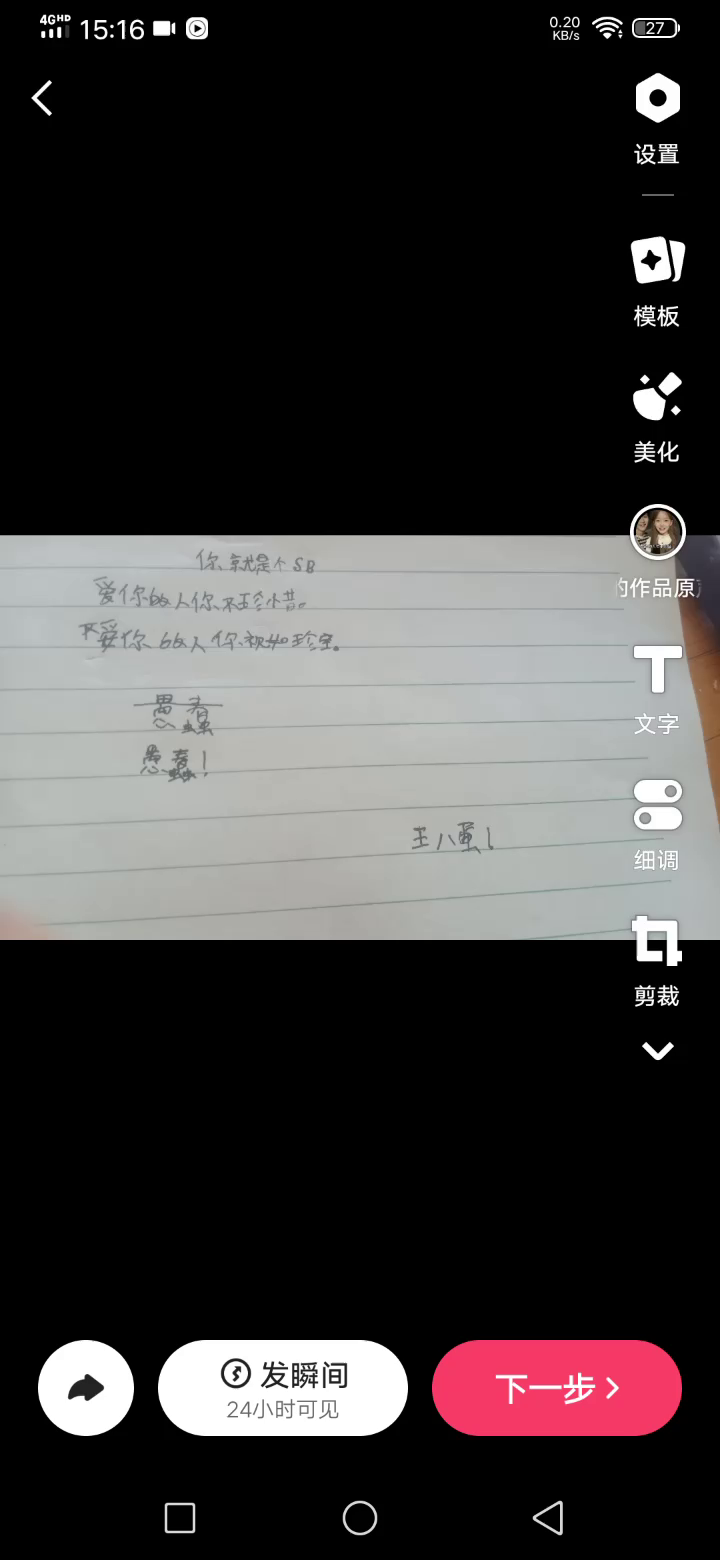 4GHD 15:16 0.20 KB/s 27
设置
模板
美化
的作品原
文字
细调
剪裁
你就是个SB
爱你的人你不珍惜。
不爱你的人你视如珍宝。
愚蠢
愚蠢！
王八蛋！
发瞬间
24小时可见
下一步